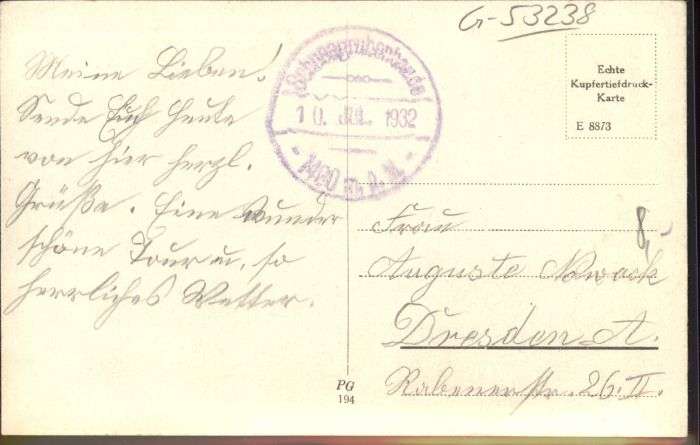 G-53238
Meine Lieben!
Sende Euch heute
von hier herzl.
Grüße. Eine wunder
schöne Tour u. so
herrliches Wetter.
Schneegrubenbaude
10. JUL. 1932
- 1490 m. ü. M. -
Echte
Kupfertiefdruck-
Karte
E 8873
8,-
Frau
Auguste Nowack
Dresden A.
Rabenerstr. 26. II.
PG
194